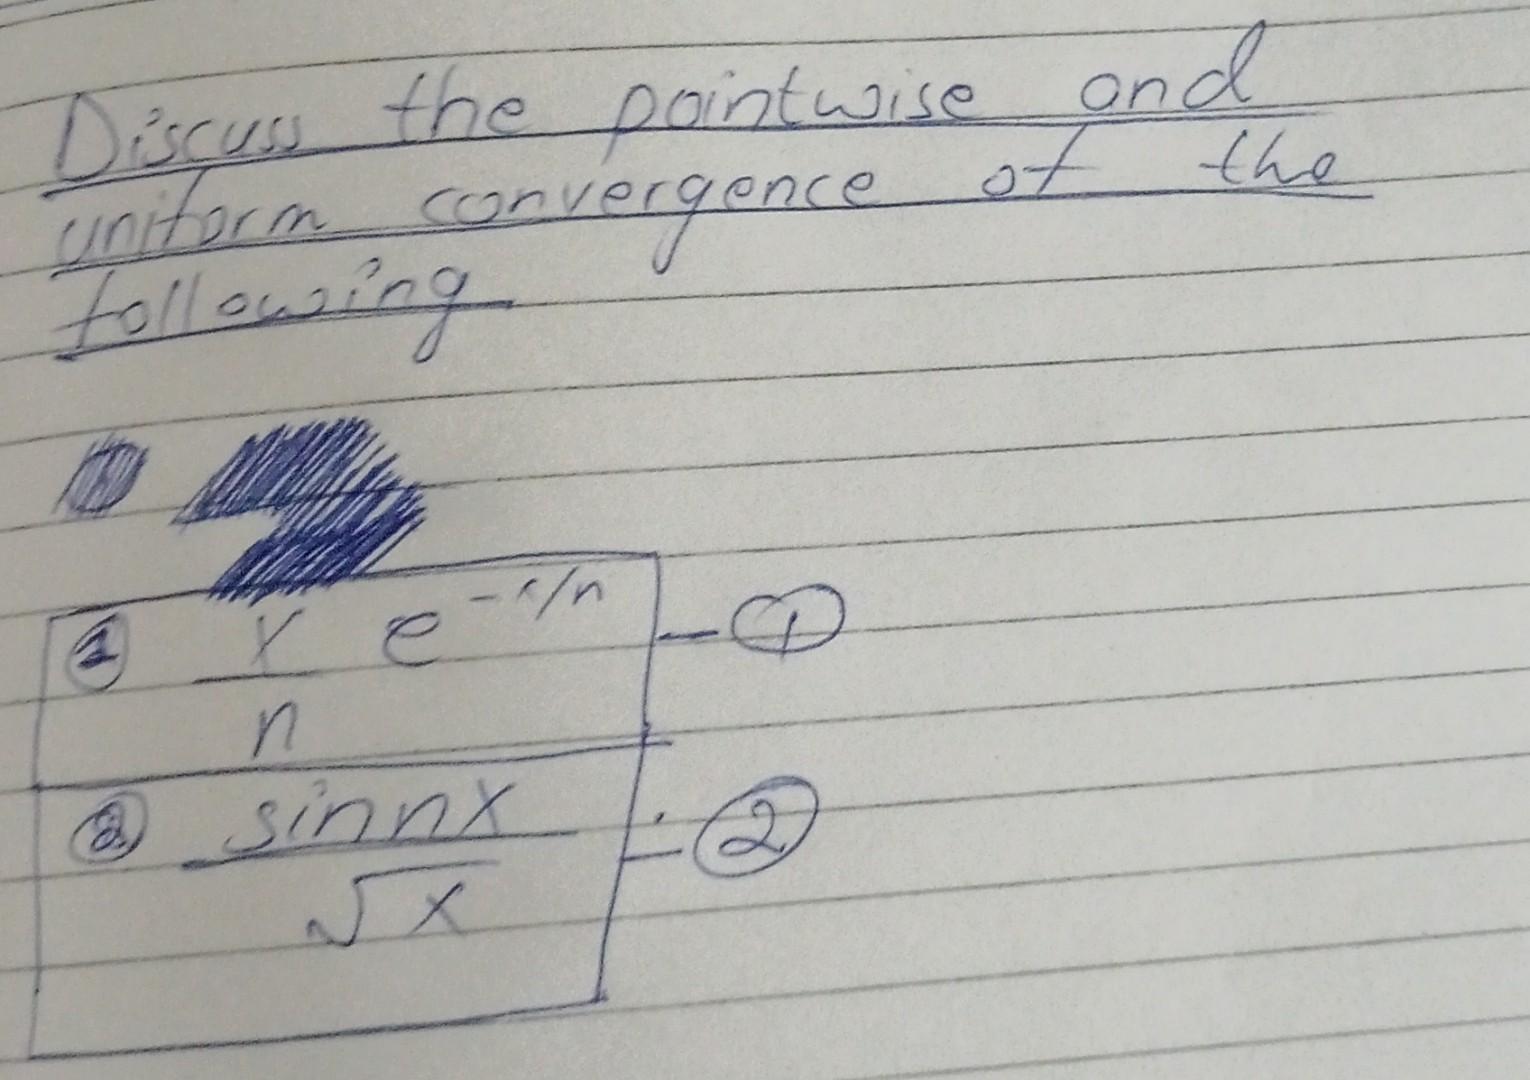 Discuss the pointwise and
uniform convergence of the
following
① x/n e^-x/n - ①
② sin nx / √x - ②